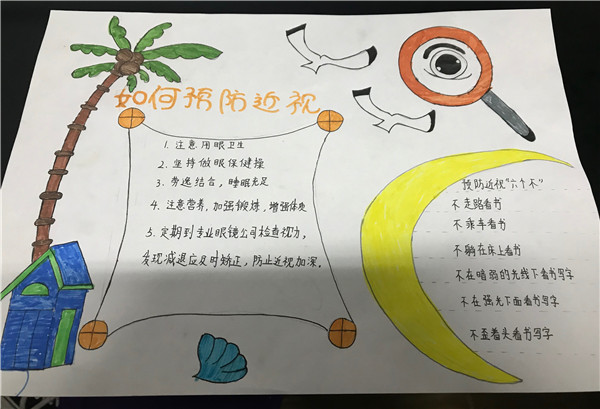 如何预防近视
1. 注意用眼卫生
2. 坚持做眼保健操
3. 劳逸结合，睡眠充足
4. 注意营养，加强锻炼，增强体质
5. 定期到专业眼镜公司检查视力，
发现减退应及时矫正，防止近视加深。
预防近视"六个不"
不走路看书
不乘车看书
不躺在床上看书
不在暗弱的光线下看书写字
不在强光下面看书写字
不歪着头看书写字